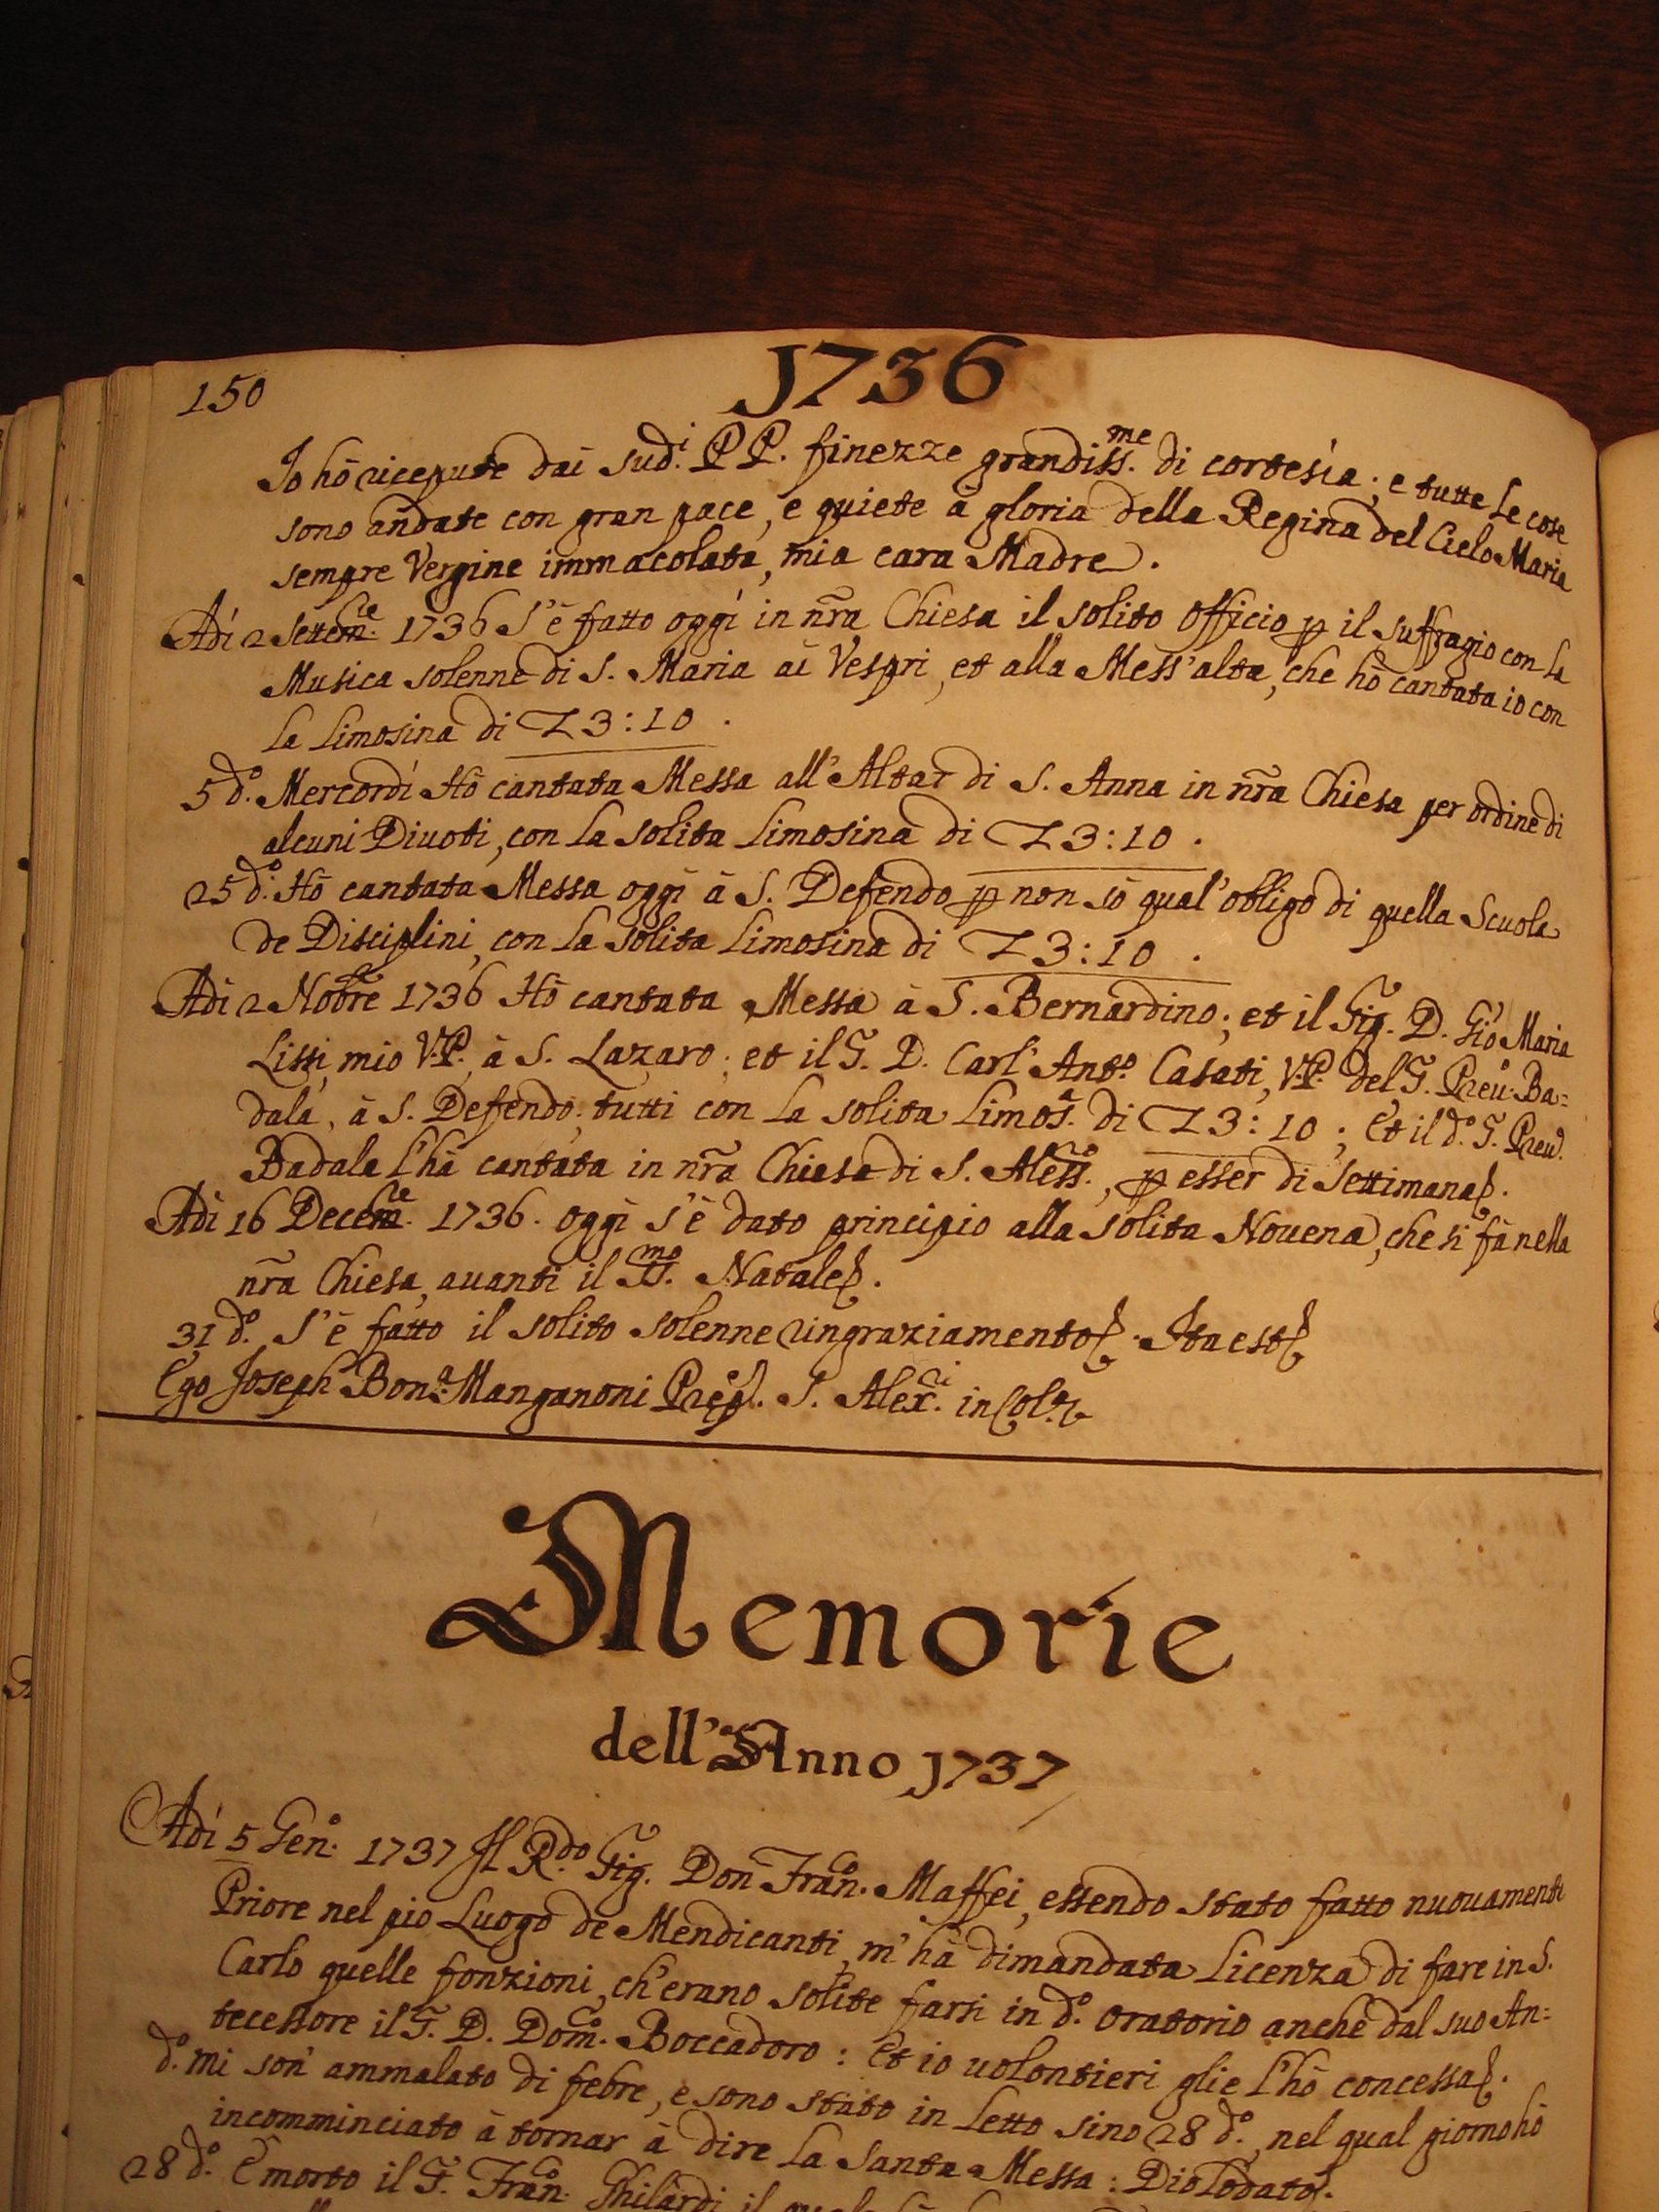 150
1736
Io hò riceuute dai sud.i PP. finezze grandiss.me di cortesia; e tutte le cose
sono andate con gran pace, e quiete à gloria della Regina del Cielo Maria
sempre Vergine immacolata, mia cara Madre.
Adì 2 Settem.e 1736 S'è fatto oggi in nr̃a Chiesa il solito Officio ꝑ il suffragio con la
Musica solenne di S. Maria ai Vespri, et alla Mess'alta, che hò cantata io con
la limosina di Z 3:10.
5 d.o Mercordì Hò cantata Messa all'Altar di S. Anna in nr̃a Chiesa per ordine di
alcuni Diuoti, con la solita limosina di Z 3:10.
25 d.o Hò cantata Messa oggi à S. Defendo ꝑ non sò qual'obligo di quella Scuola
de Disciplini, con la solita limosina di Z 3:10.
Adì 2 Nobr̃e 1736 Hò cantata Messa à S. Bernardino; et il Sig. D. Gio Maria
Lissi, mio V.P. à S. Lazaro; et il S. D. Carl'Ant.o Casati, V.P. del S. Preu. Ba=
dala, à S. Defendo; tutti con la solita limos.a di Z 3:10; Et il d.o S. Preu.
Badala l'hà cantata in nr̃a Chiesa di S. Aless.o, ꝑ esser di settimana.
Adì 16 Decem.e 1736. oggi s'è dato principio alla solita Nouena, che si fà nella
nr̃a Chiesa, auanti il SS.mo Natale.
31 d.o S'è fatto il solito solenne ringraziamento. Ita est
Ego Joseph Bon.a Manganoni Prep. S. Alex.i in Col.a
Memorie
dell'Anno 1737
Adì 5 Gen.o 1737 Il R.do Sig. Don Fran.o Maffei, essendo stato fatto nuouamente
Priore nel pio Luogo de Mendicanti, m'hà dimandata licenza di fare in S.
Carlo quelle fonzioni, ch'erano solite farsi in d.o oratorio anche dal suo An=
tecessore il S. D. Dom.o Boccadoro: Et io uolontieri glie l'hò concessa.
d.o mi son' ammalato di febre, e sono stato in letto sino 28 d.o, nel qual giorno hò
incomminciato à tornar à dire la Santa Messa: Dio lodato.
28 d.o È morto il S. Fran.o Ghilardi il quale